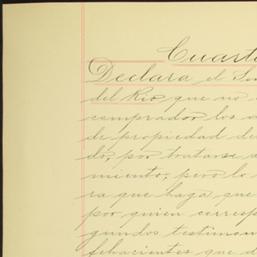 Cuarto
Declara el Se
del Rio que no
comprador los
de propiedad de
do, por tratarse
miento, pero lo
ra que haga que
por quien corresp
gundos testimon
fehacientes que d